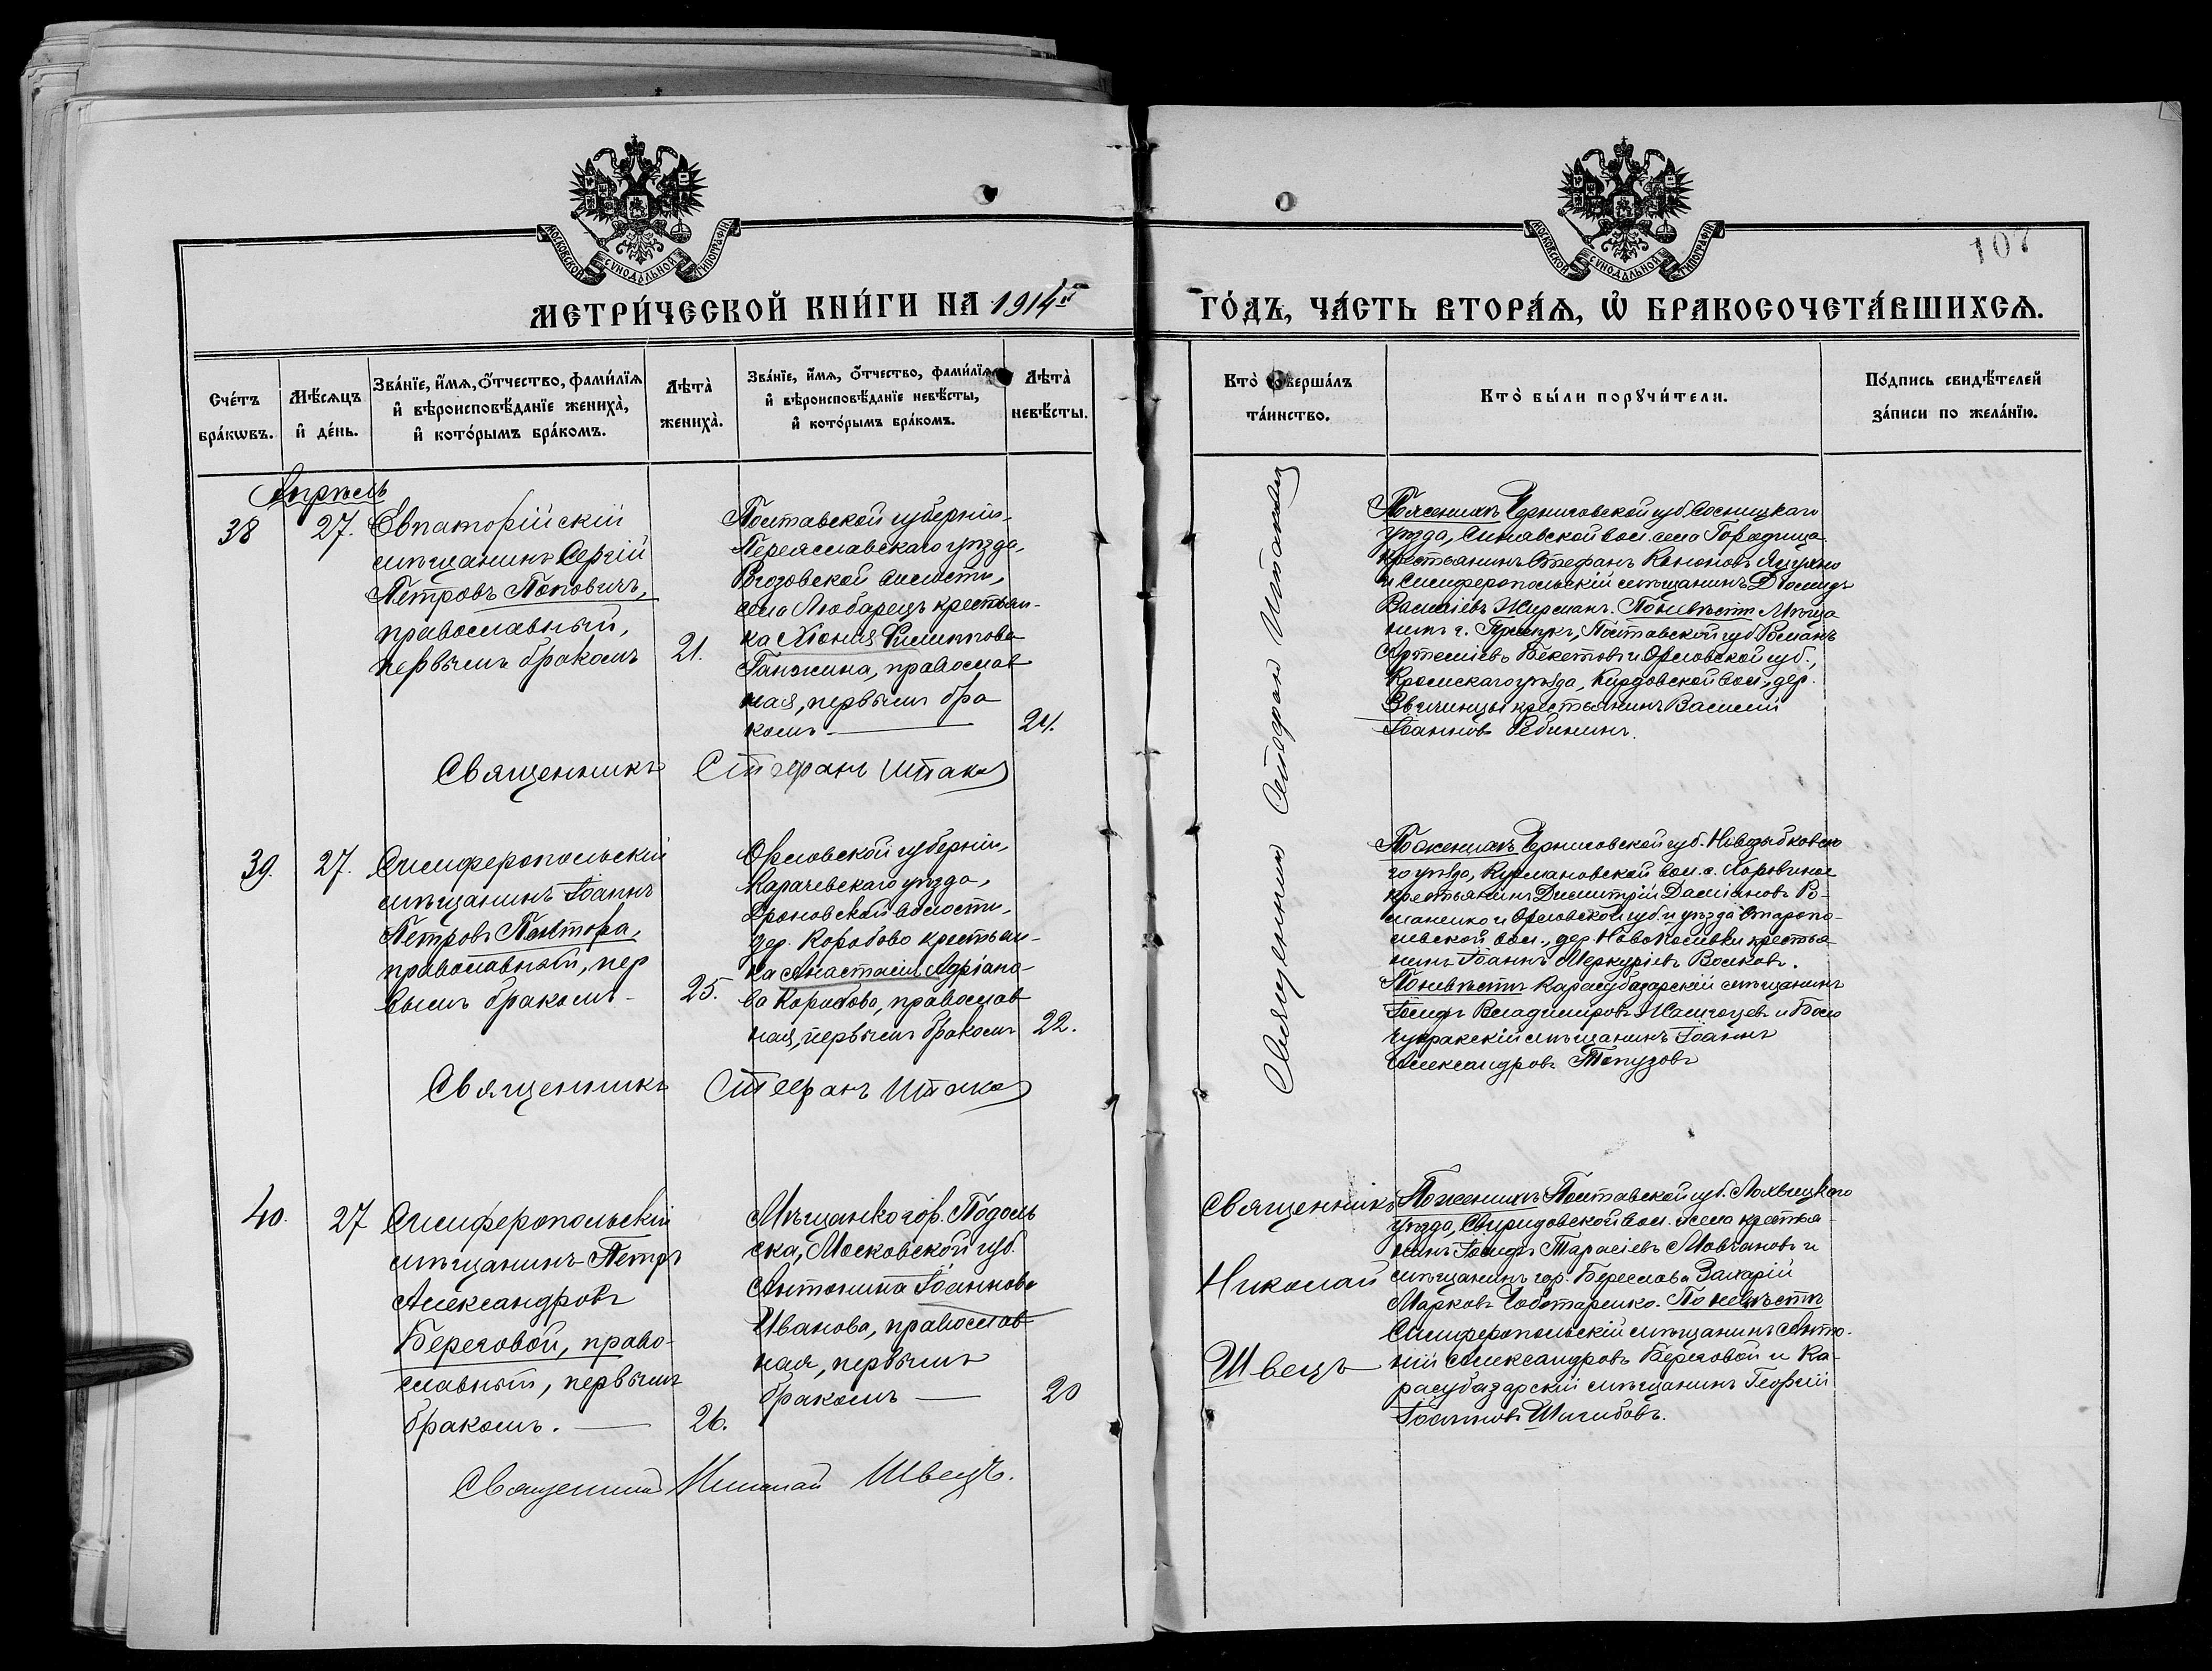 МОСКОВСКОЙ СѴНОДАЛЬНОЙ ТИПОГРАФІИ
МОСКОВСКОЙ СѴНОДАЛЬНОЙ ТИПОГРАФІИ
107
МЕТРИ́ЧЕСКОЙ КНИ́ГИ НА 1914й
ГО́ДЪ, ЧА́СТЬ ВТОРА́Ѧ, Ѡ БРАКОСОЧЕТА́ВШИХСѦ.
Сче́тъ бра́кѡвъ.
Мѣ́сѧцъ и҆ де́нь.
Зва́нїе, и҆́мѧ, ѻ҆́тчество, фами́лїѧ
и҆ вѣроисповѣ́данїе жениха̀,
и҆ кото́рымъ бра́комъ.
Лѣта̀ жениха̀.
Зва́нїе, и҆́мѧ, ѻ҆́тчество, фами́лїѧ
и҆ вѣроисповѣ́данїе невѣ́сты,
и҆ кото́рымъ бра́комъ.
Лѣта̀ невѣ́сты.
Кто̀ соверша́лъ
та́инство.
Кто̀ бы́ли порꙋчи́тели.
По́дпись свидѣ́телей
за́писи по жела́нїю.
Апрѣль
38
27.
Евпаторійскій
мѣщанинъ Сергій
Петровъ Поповичъ,
православный,
первымъ бракомъ
21.
Полтавской губерніи,
Переяславскаго уѣзда,
Рогозовской волости,
села Любарецъ крестьян-
ка Хіонія Филиппова
Ганжина, православ
ная, первымъ бра
комъ
24.
Священникъ Стефанъ
Священникъ Стефанъ
По женихѣ Черниговской губ. Сосницкаго
уѣзда, Синявской вол. села Городища
крестьянинъ Стефанъ Кононовъ Яцухно
и Симферопольскій мѣщанинъ Діомидъ
Василіевъ Жирманъ. По невѣстѣ Мѣща
нинъ г. Прилукъ, Полтавской губ. Романъ
Артеміевъ Бекетовъ и Орловской губ.,
Кромскаго уѣзда, вол., дер.
крестьянинъ Василій
Іоанновъ Рябининъ.
39.
27.
Симферопольскій
мѣщанинъ Іоаннъ
Петровъ Полтора,
православный, пер
вымъ бракомъ
25.
Орловской губерніи,
Карачевскаго уѣзда,
Дроновской волости,
дер. Коробово крестьян-
ка Анастасія Адріано-
ва Коробова, православ
ная, первымъ бракомъ
22.
Священникъ Стефанъ
По женихѣ Черниговской губ. Новозыбковска
го уѣзда, вол. с.
крестьянинъ Димитрій Даміановъ Ро-
маненко и Орловской губ. и уѣзда Старопо-
левской вол., дер. крестья-
нинъ Іоаннъ Меркуріевъ Волковъ.
По невѣстѣ Карасубазарскій мѣщанинъ
Іосифъ Владиміровъ и
мѣщанинъ Іоаннъ
Александровъ Топузовъ
40.
27
Симферопольскій
мѣщанинъ Петръ
Александровъ
Береговой, право-
славный, первымъ
бракомъ.
26.
Мѣщанка гор. Подоль
ска, Московской губ.
Антонина Іоаннова
Иванова, православ
ная, первымъ
бракомъ
20
Священникъ Николай Швецъ.
Священникъ
Николай
Швецъ
По женихѣ Полтавской губ. Лохвицкаго
уѣзда, Свиридовской вол. и села крестья-
нинъ Іосифъ Тарасіевъ Мовчановъ и
мѣщанинъ гор. Береслава Захарій
Марковъ Чоботаренко. По невѣстѣ
Симферопольскій мѣщанинъ Анто-
ній Александровъ Береговой и Ка-
расубазарскій мѣщанинъ Георгій
Іоанновъ Шигибовъ.